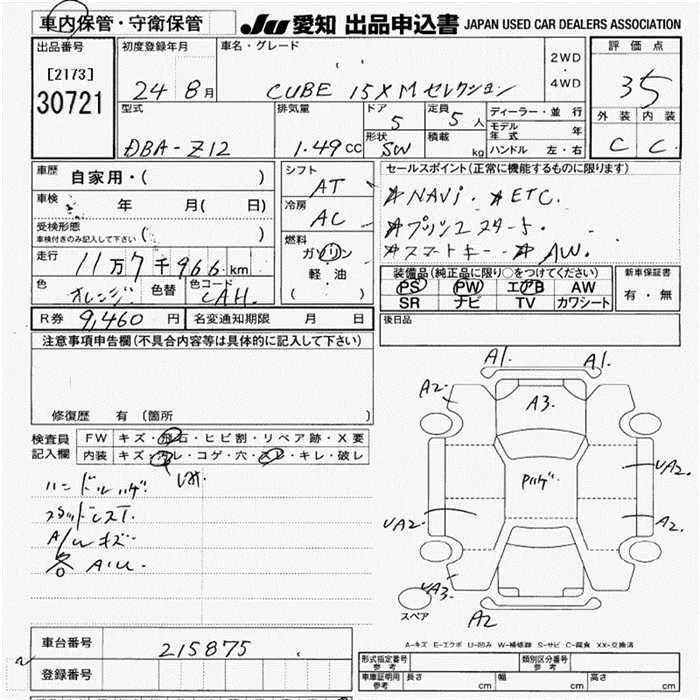 車内保管・守衛保管
JU 愛知 出品申込書 JAPAN USED CAR DEALERS ASSOCIATION
出品番号
[2173]
30721
初度登録年月
24 8 月
車名・グレード
CUBE 15X Mセレクション
2WD
・
4WD
評価点
35
外装 内装
C C
型式
DBA-Z12
排気量
1.49 CC
ドア
5
定員
5 人
形状
SW
積載
kg
ディーラー・並行
モデル年式 年
ハンドル 左・右
車歴
自家用・( )
車検 年 月( 日)
受検形態
車検付きのみ記入して下さい ( )
走行 11万7千966km
色 オレンジ 色替 色コード CAH.
R券 9,460 円 名変通知期限 月 日
シフト
AT
冷房
AC
燃料
ガソリン
軽・油
・
( )
セールスポイント(正常に機能するものに限ります)
☆NAVi. ☆ETC.
☆プッシュスタート.
☆スマートキー ☆AW.
装備品(純正品に限り○をつけてください)
PS PW エアB AW
SR ナビ TV カワシート
新車保証書
有・無
後日品
注意事項申告欄(不具合内容等は具体的に記入して下さい)
修復歴 有(箇所 )
検査員記入欄
FW キズ・飛石・ヒビ割・リペア跡・X要
内装 キズ・汚レ・コゲ・穴・スレ・キレ・破レ
ハンドルハゲ.
A/Wキズ.
各A1U.
A1. A1.
A2.
A3.
Pハゲ
UA2.
UA2-
A2.
UA3.
A2
スペア
A-キズ E-エクボ U-凹み W-補修跡 S-サビ C-腐食 XX-交換済
車台番号 215875
登録番号
形式指定番号 参考
類別区分番号 参考
車庫証明用 参考 長さ cm 幅 cm 高さ cm